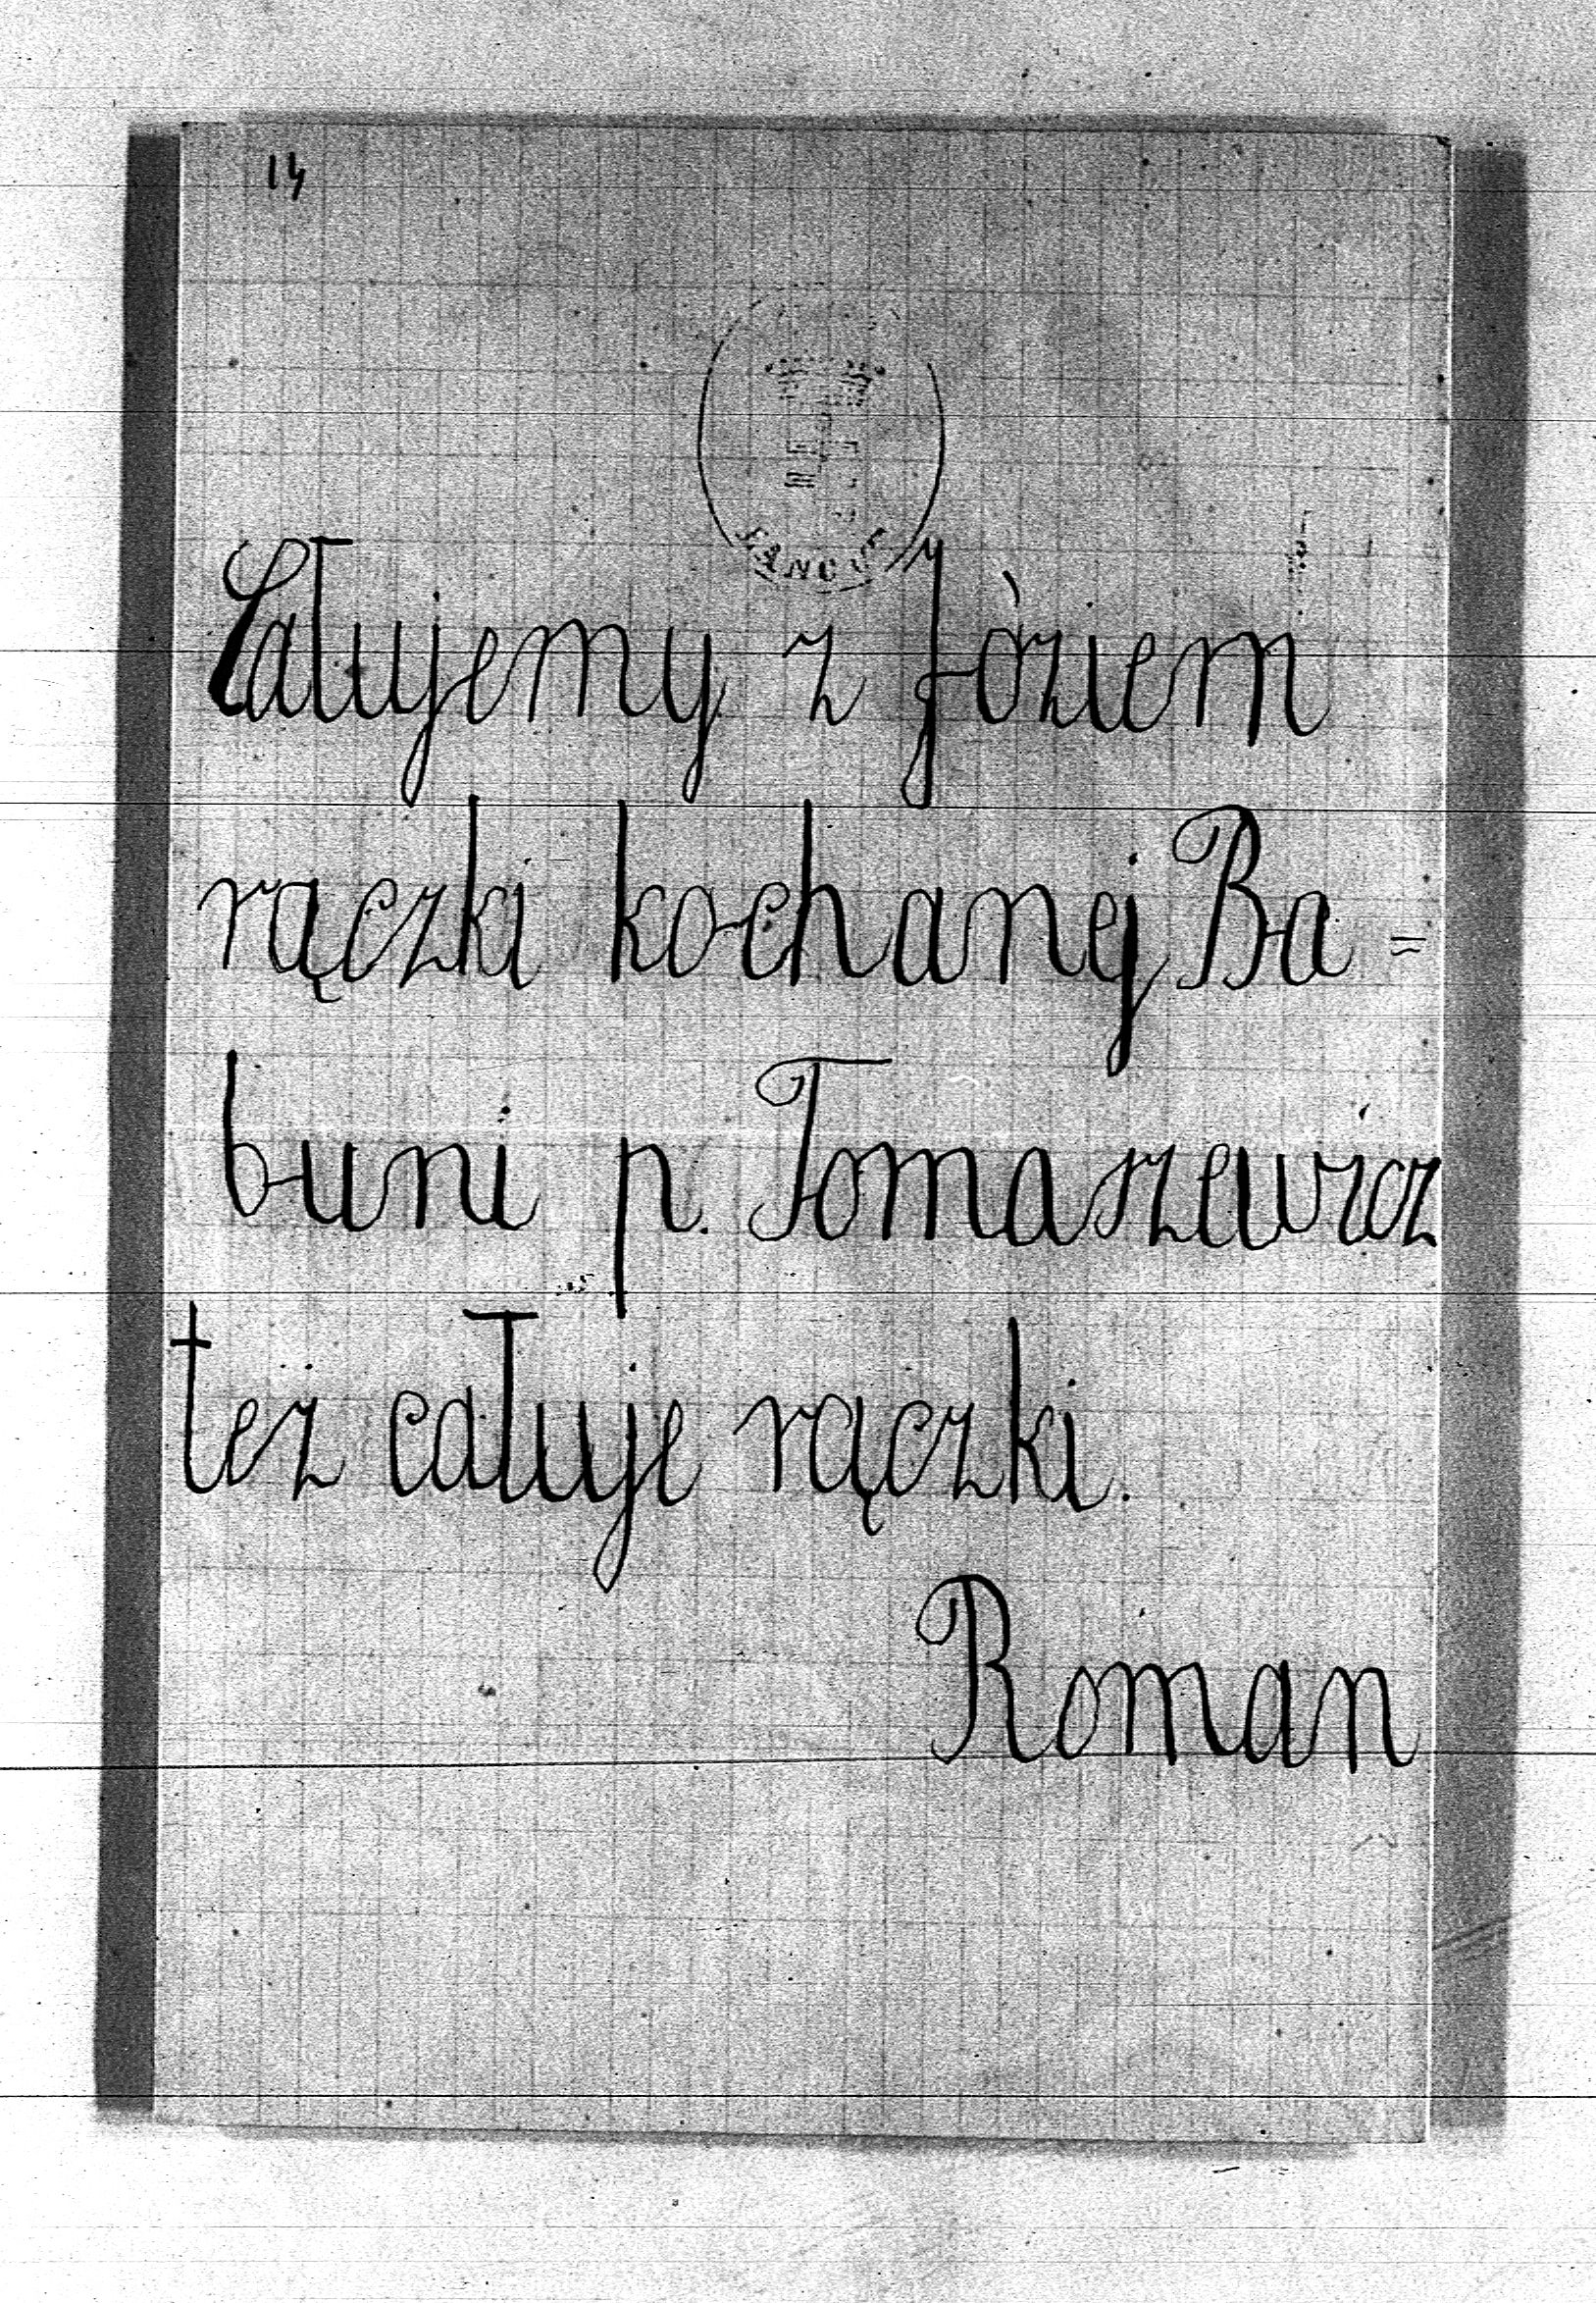 14
ŁAŃCUT
Całujemy z Józiem
rączki kochanej Ba=
buni p. Tomaszewicz
też całuje rączki.
Roman